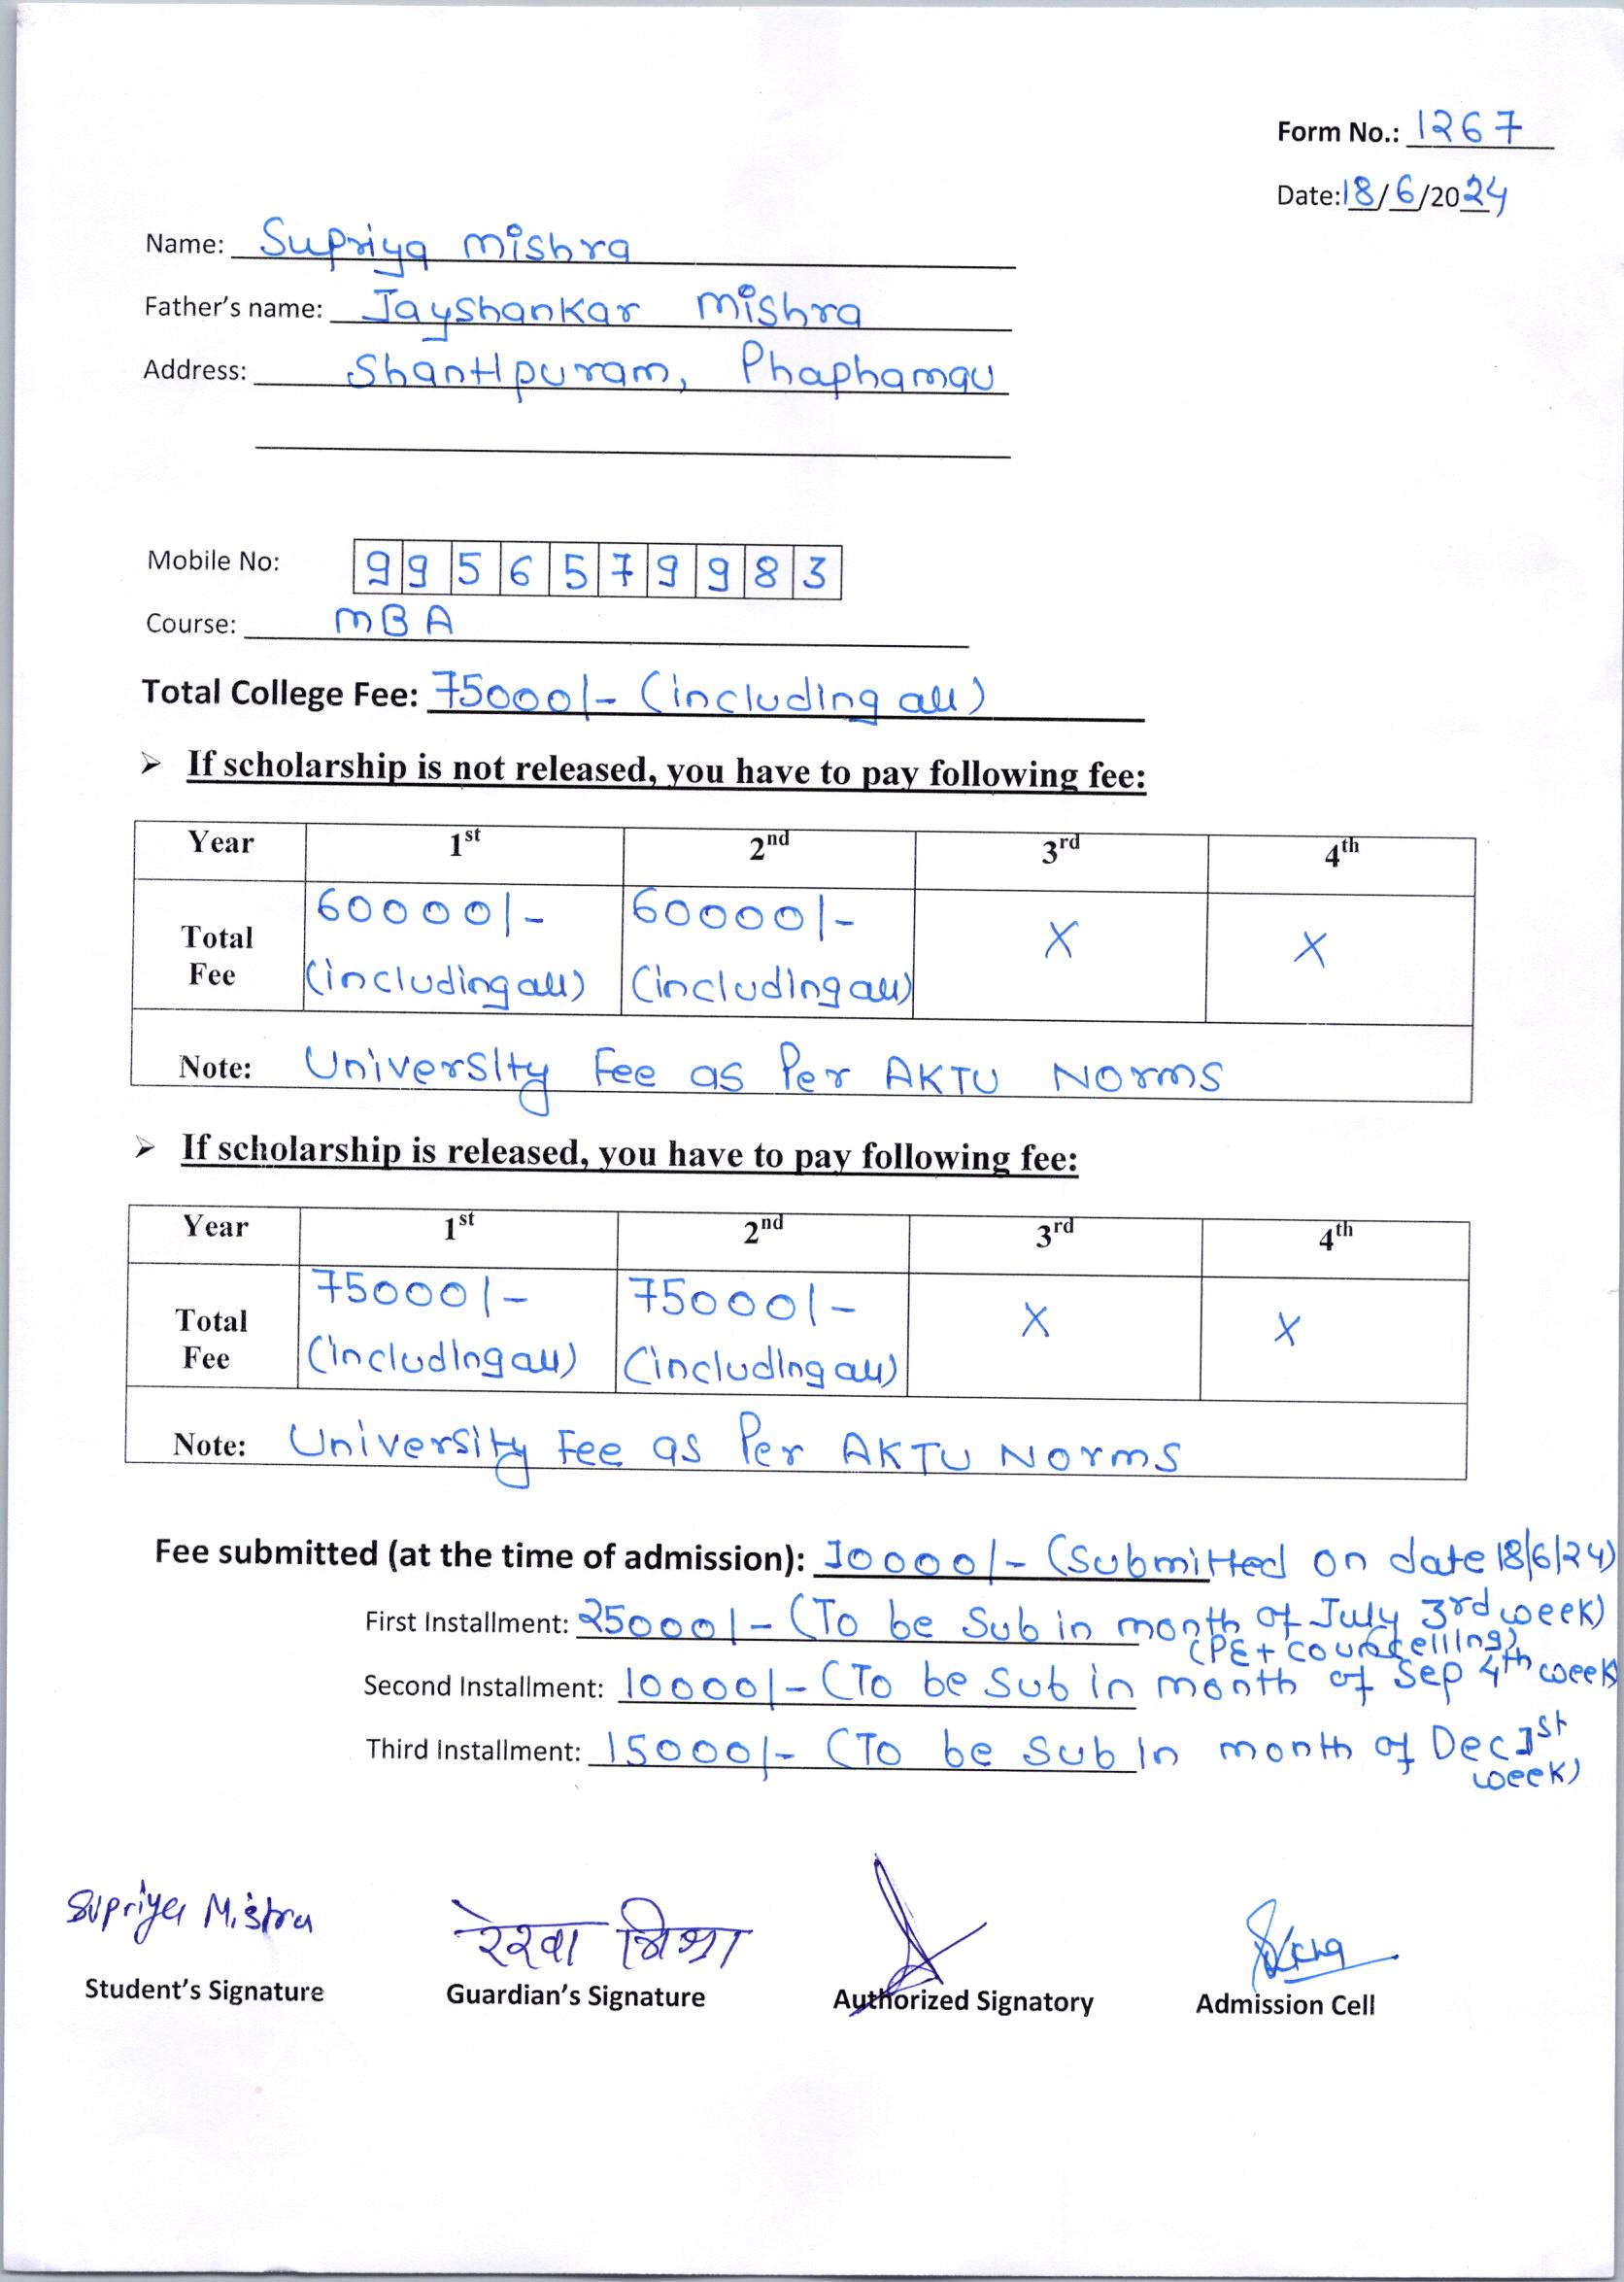 Form No.: 1267
Date: 18/6/2024
Name: Supriya Mishra
Father's name: Jayshankar Mishra
Address: Shantipuram, Phaphamau
Mobile No: 9956579983
Course: MBA
Total College Fee: 75000/- (including all)
➢ If scholarship is not released, you have to pay following fee:
Year 1st 2nd 3rd 4th
60000/- 60000/-
Total Fee (including all) (including all) X X
Note: University Fee as Per AKTU Norms
➢ If scholarship is released, you have to pay following fee:
Year 1st 2nd 3rd 4th
75000/- 75000/-
Total Fee (including all) (including all) X X
Note: University Fee as Per AKTU Norms
Fee submitted (at the time of admission): 10000/- (Submitted on date 18/6/24)
First Installment: 25000/- (To be Sub in month of July 3rd week)
(PE + Councelling)
Second Installment: 10000/- (To be Sub in month of Sep 4th week
Third Installment: 15000/- (To be Sub in month of Dec 1st
week)
Supriya Mishra रेखा मिश्रा
Student's Signature Guardian's Signature Authorized Signatory Admission Cell